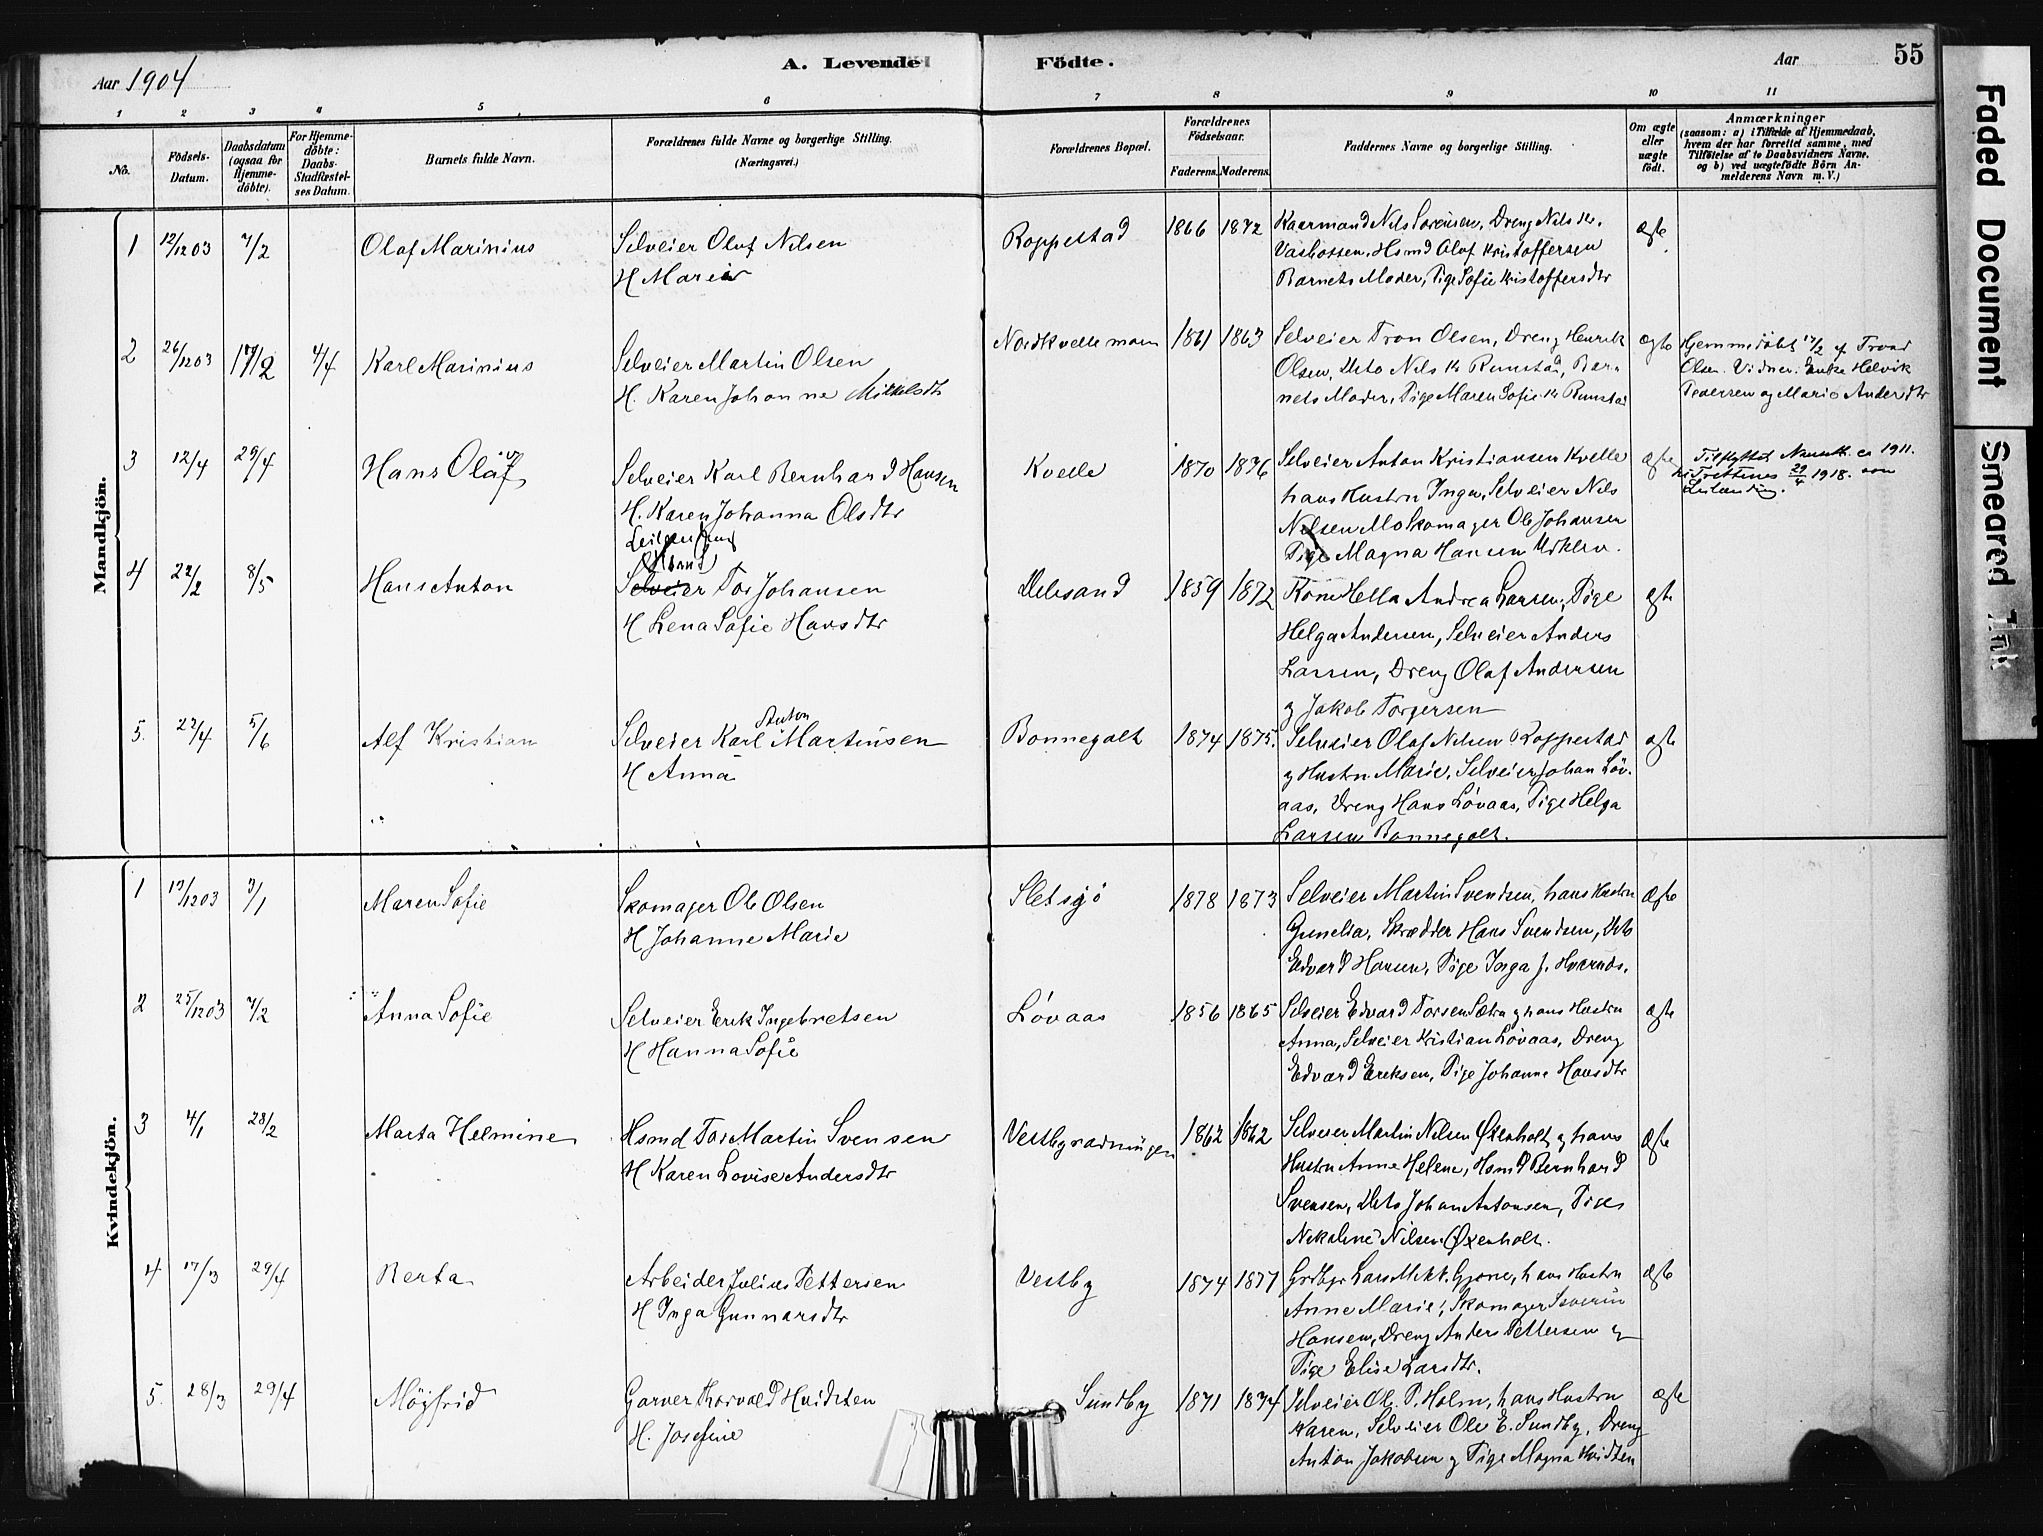 Aar 1904
A. Levende Födte.
Aar
55
1 2 3 4 5 6 7 8 9 10 11
No.
Födsels-Datum.
Daabsdatum (ogsaa for Hjemme-döbte).
For Hjemme-döbte: Daabs-Stadfæstel-ses Datum.
Barnets fulde Navn.
Forældrenes fulde Navne og borgerlige Stilling.
(Næringsvei.)
Forældrenes Bopæl.
Forældrenes Födselsaar.
Faderens. Moderens.
Faddernes Navne og borgerlige Stilling.
Om ægte eller uægte födt.
Anmærkninger
(saasom: a) i Tilfælde af Hjemmedaab,
hvem der har forrettet samme, med
Tilföielse af to Daabsvidners Navne,
og b) ved uægtefödte Börn An-
melderens Navn m. V.)
Mandkjön.
1 12/12 03 7/2 Olaf Marinius
Selveier Olaf Nilsen
H Marie
Roppestad 1866 1872
Kaarmand Nils Sörensen, Dreng Nils
Hsmd Olaf Kristoffersen
Barnets Moder, Pige Sofie Kristoffersdtr
ægte
2 26/12 03 17/2 4/4 Karl Marinius
Selveier Martin Olsen
H. Karen Johanne Mikkelsdtr
1861 1863
Selveier Tron Olsen, Dreng Henrik
Olsen, Dito Nils Rumstad, Bar-
nets Moder, Pige Maren Sofie Rumstad
ægte
Hjemmedöbt 17/2 af Trond
Olsen. Vidner: Enke Helvik
Pedersen og Marie Andersdtr
3 12/4 29/4 Hans Olaf
Selveier Karl Bernhard Hansen
H. Karen Johanna Olsdtr
Kvelle 1870 1876
Selveier Anton Kristiansen Kvelle
hans Hustru Inga, Selveier Nils
Nilsen Mo Skomager Ole Johansen
Pige Magna Hansen
ægte
Tilflyttet ca 1911.
29/4 1918.
4 22/2 8/5 Hans Anton
Selveier Tor Johansen
H Lena Sofie Hansdtr
1859 1872
Kone Hella Andrea Larsen, Pige
Helga Andersen, Selveier Anders
Larsen, Dreng Olaf Andersen
og Jakob Torgersen
ægte
5. 23/4 5/6 Alf Kristian
Selveier Karl Anton Martinsen
H Anna
Bonnegolt 1874 1875.
Selveier Olaf Nilsen Roppestad
og Hustru Marie, Selveier Johan Löv-
aas, Dreng Hans Lövaas, Pige Helga
Larsen Bonnegolt.
ægte
Kvindekjön.
1 19/12 03 3/1 Maren Sofie
Skomager Ole Olsen
H Johanne Marie
Sletsjö 1878 1873
Selveier Martin Svendsen, hans Hustru
Gunelia, Skrædder Hans Svendsen, Dito
Edvard Hansen, Pige Inga J. Hvarnes.
Ægte
2 25/12 03 7/2 Anna Sofie
Selveier Erik Ingebretsen
H Hanna Sofie
Lövaas 1856 1865
Selveier Edvard Torsen Sætra og hans Hustru
Anna, Selveier Kristian Lövaas, Dreng
Edvard Eriksen, Pige Johanne Hansdtr
ægte
3 4/1 28/2 Marta Helmine
Hsmd Tor Martin Svensen
H Karen Lovise Andersdtr
Vestbyradningen 1862 1862
Selveier Martin Nilsen Øxenholt og hans
Hustru Anne Helene, Hsmd Bernhard
Svensen, Dito Johan Antonsen, Pige
Nikoline Nilsen Øxenholt.
Ægte
4 17/3 29/4 Berta
Arbeider Julius Pettersen
H Inga Gunnarsdtr
Vestby 1874 1877
Grdbgr Lars Mikk. Gjone, hans Hustru
Anne Marie, Skomager Severin
Hansen, Dreng Anders Pettersen og
Pige Elise Larsdtr.
Ægte
5. 28/3 29/4 Möyfrid
Garver Thorvald Hvidsten
H. Josefine
Sundby 1871 1874
Selveier Ol. P. Holm, hans Hustru
Karen, Selveier Ole E. Sundby, Dreng
Anton Jakobsen og Pige Magna Hvidsten
Ægte
Faded Document
Smeared Ink.